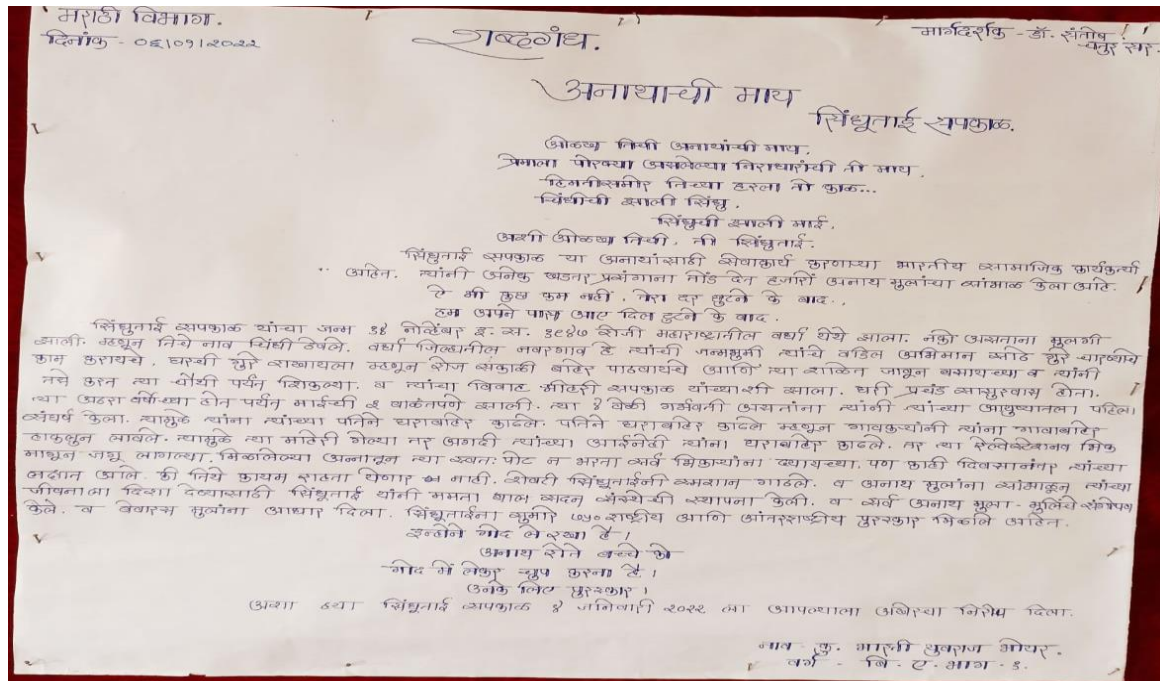 मराठी विभाग.
दिनांक - 06/09/2022
शब्दगंध.
मार्गदर्शक - डॉ. संतोष
चतुर सर.
अनाथाची माय
सिंधूताई सपकाळ.
ओळख तिची अनाथांची माय.
प्रेमाला पोरक्या असलेल्या निराधारांची ती माय.
हिमतीसमोर तिच्या हरला तो काळ...
चिंधीची झाली सिंधु.
सिंधुची झाली माई.
अशी ओळख तिची, ती सिंधुताई.
सिंधुताई सपकाळ या अनाथांसाठी सेवाकार्य करणाऱ्या भारतीय सामाजिक कार्यकर्त्या
आहेत. त्यांनी अनेक खडतर प्रसंगाना तोंड देत हजारों अनाथ मुलांचा सांभाळ केला आहे.
ऐ भी कुछ कम नहीं, तेरा दर छुटने के बाद..
हम अपने पास आए दिल टुटने के बाद.
सिंधुताई सपकाळ यांचा जन्म १४ नोव्हेंबर इ. स. १९४७ रोजी महाराष्ट्रातील वर्धा येथे झाला. नको असताना मुलगी
झाली. म्हणून तिचे नाव चिंधी ठेवले. वर्धा जिल्ह्यातील नवरगाव हे त्यांची जन्मभुमी त्यांचे वडिल अभिमान साठे गुरे चारण्याचे
काम करायचे. घरची गुरे राखायला म्हणून रोज सकाळी बाहेर पाठवायचे आणि त्या शाळेत जावून बसायच्या व त्यांनी
तसे करत त्या चौथी पर्यंत शिकल्या. व त्यांचा विवाह श्रीहरी सपकाळ यांच्याशी झाला. घरी प्रचंड सासुरवास होता.
त्या अठरा वर्षाच्या होत पर्यंत माईची ३ बाळंतपणे झाली. त्या ४ वेळी गर्भवती असतांना त्यांनी त्यांच्या आयुष्यातला पहिला
संघर्ष केला. त्यामुळे त्यांना त्यांच्या पतिने घराबाहेर काढले. पतिने घराबाहेर काढले म्हणून गावकऱ्यांनी त्यांना गावाबाहेर
हाकलून लावले. त्यामुळे त्या माहेरी गेल्या तर अगदी त्यांच्या आईनेही त्यांना घराबाहेर काढले. तर त्या रेल्वेस्टेशनवर भिक
मागून जगू लागल्या. मिळालेल्या अन्नातून त्या स्वतः पोट न भरता सर्व भिकाऱ्यांना द्यायच्या. पण काही दिवसानंतर त्यांच्या
लक्षात आले. की तिथे कायम राहता येणार नाही. शेवटी सिंधुताईनी स्मशान गाठले. व अनाथ मुलांना सांभाळून त्यांच्या
जीवनाला दिशा देण्यासाठी सिंधुताई यांनी ममता बाल सदन संस्थेची स्थापना केली. व सर्व अनाथ मुला - मुलिंचे संगोपण
केले. व बेवारस मुलांना आधार दिला. सिंधुताईना सुमारे ७५० राष्ट्रीय आणि आंतरराष्ट्रीय पुरस्कार मिळाले आहेत.
इन्होने गोद ले रखा है।
अनाथ रोते बच्चे को
गोद में लेकर चुप करना है।
उनके लिए पुरस्कार।
अशा ह्या सिंधुताई सपकाळ ४ जानेवारी २०२२ ला आपल्याला अखेरचा निरोप दिला.
नाव - कु. भारती युवराज भोयर.
वर्ग - बि. ए. भाग - १.